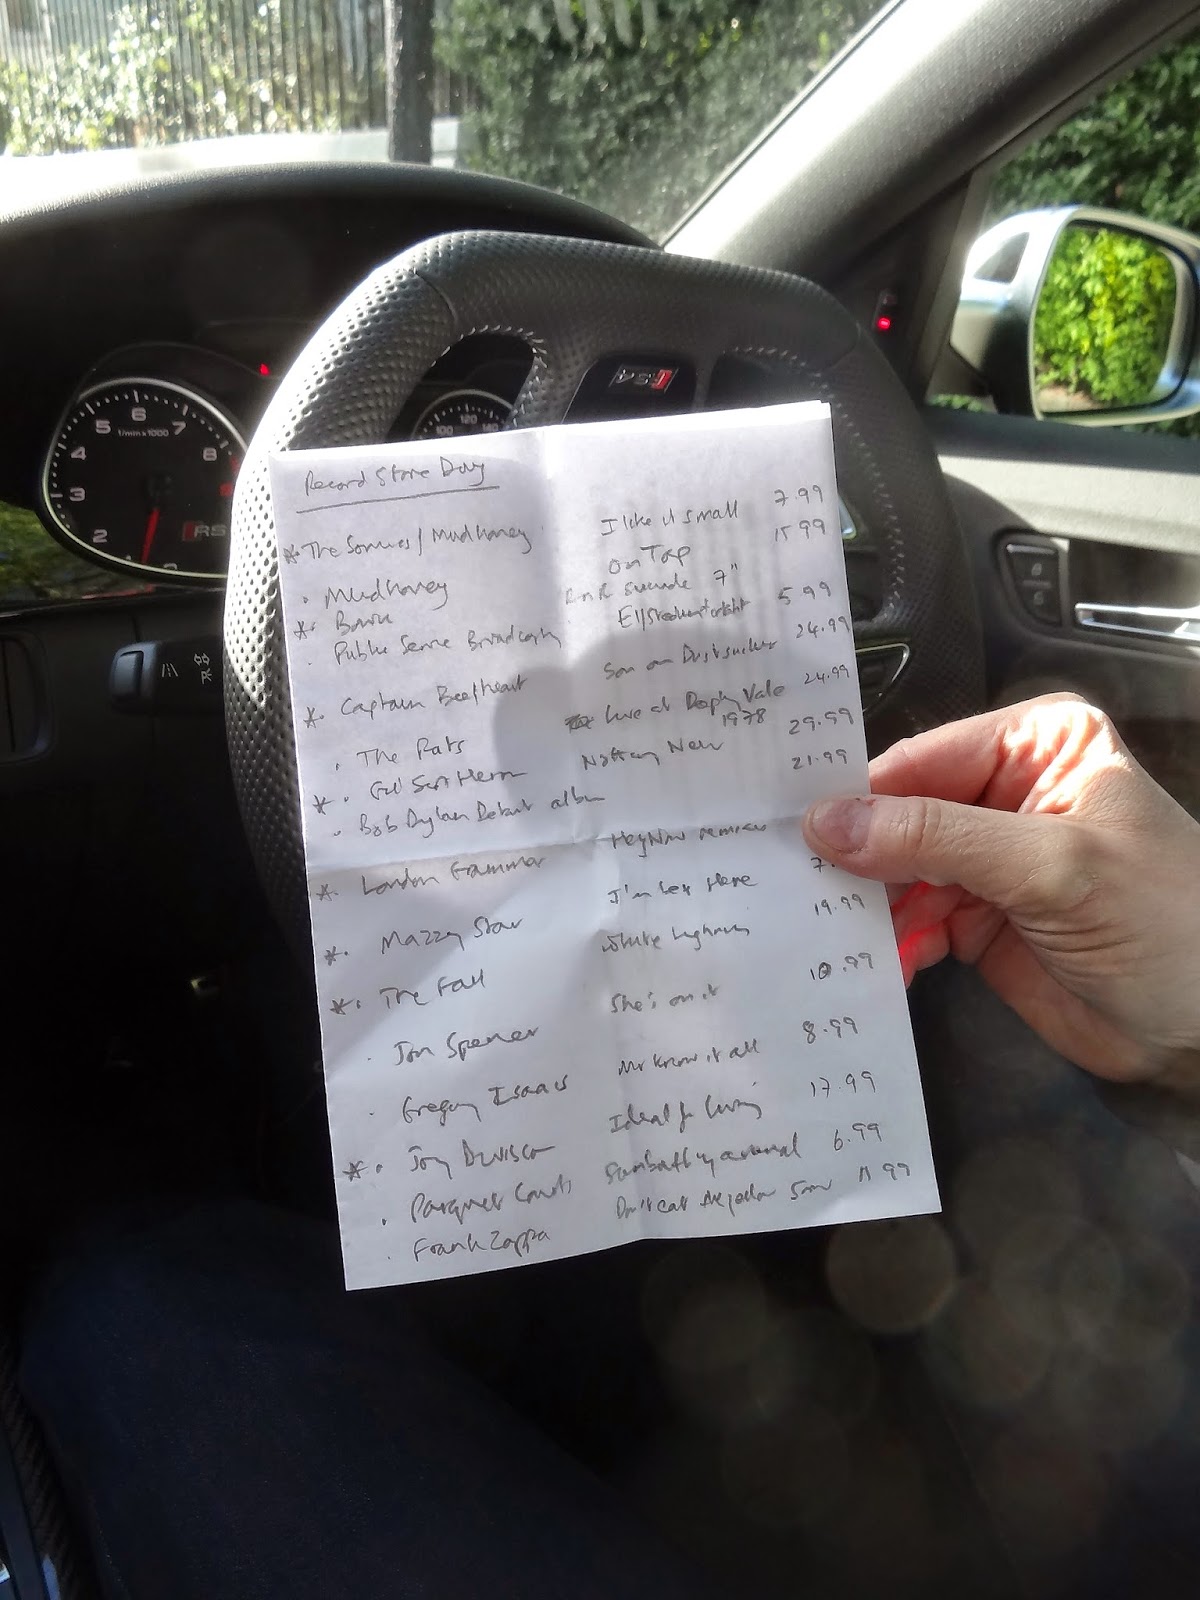 Record Store Day
* The Sonics / Mudhoney I like it small 7.99
. Mudhoney On Tap 15 99
* . Bowie RnR suicide 7"
. Public Service Broadcasting 5 99
* . Captain Beefheart Son on Dustsucker 24.99
. The Rats Live at Deeply Vale 1978 24.99
* . Gil Scott Heron Nothing New 29.99
. Bob Dylan Debut album 21.99
* . London Grammar Hey Now remixes
* . Mazzy Star I'm less Here 7.
* . The Fall White lightning 19.99
. Jon Spencer She's on it 10.99
. Gregory Isaacs Mr Know it all 8.99
* . Joy Division Ideal for living 17.99
. Parquet Courts Sunbathing animal 6.99
. Frank Zappa Don't eat the yellow snow 11 99
RS4
RS
1/min x 1000
2
3
4
5
6
7
8
100
120
140